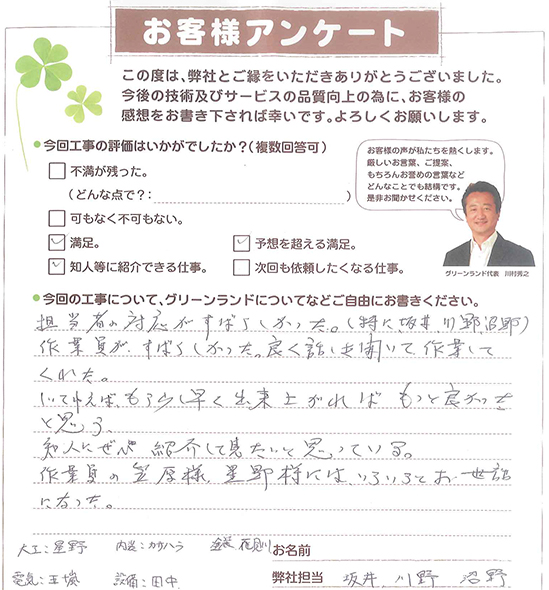 お客様アンケート
この度は、弊社とご縁をいただきありがとうございました。
今後の技術及びサービスの品質向上の為に、お客様の
感想をお書き下されば幸いです。よろしくお願いします。
●今回工事の評価はいかがでしたか?(複数回答可)
不満が残った。
(どんな点で?: )
可もなく不可もない。
満足。
予想を超える満足。
知人等に紹介できる仕事。
次回も依頼したくなる仕事。
お客様の声が私たちを熱くします。
厳しいお言葉、ご提案、
もちろんお誉めの言葉など
どんなことでも結構です。
是非お聞かせください。
グリーンランド代表 川村秀之
●今回の工事について、グリーンランドについてなどご自由にお書きください。
担当者の対応がすばらしかった。(特に坂井 川野 沼野)
作業員が、すばらしかった。良く話しを聞いて作業して
くれた。
しいて言えば、もう少し早く出来上がれば もっと良かった
と思う。
知人にぜひ紹介して見たいと思っている。
作業員の笠原様、星野様にはいろいろとお世話
になった。
大工:星野 内装:カサハラ
お名前
電気: 設備:田中
弊社担当 坂井 川野 沼野